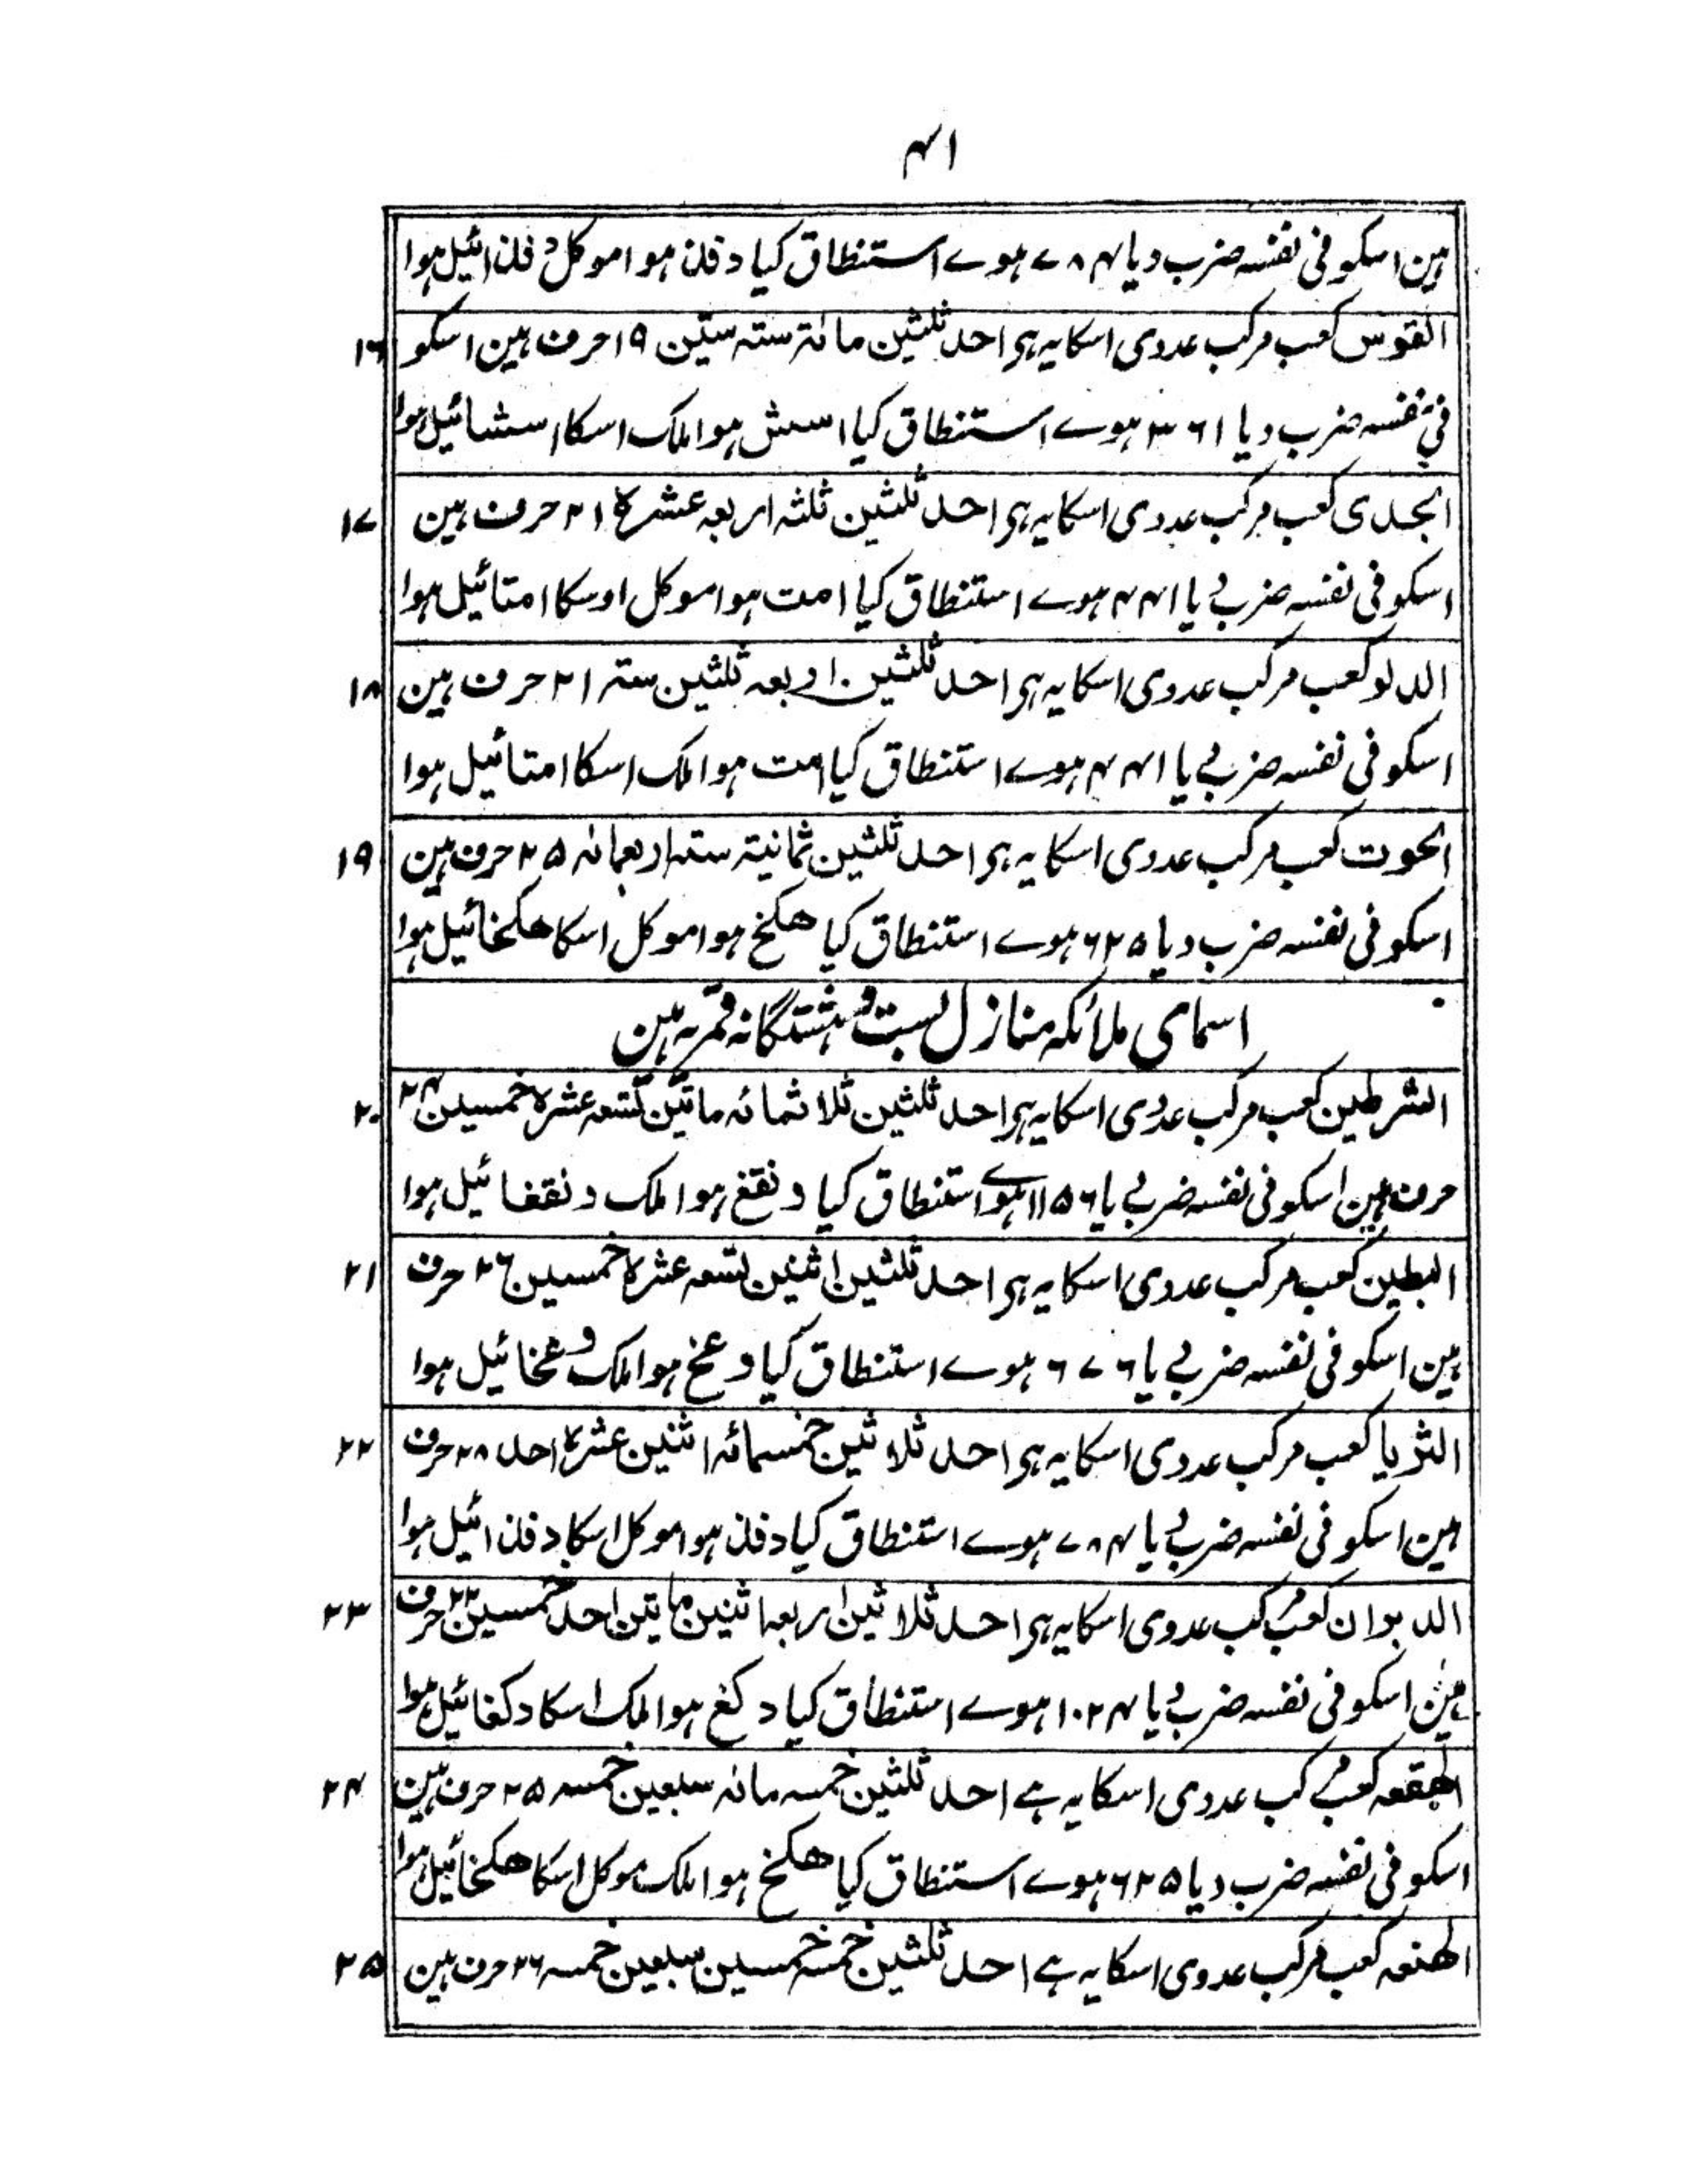 ۴۱
ہین اسکو فی نفسہ ضرب دیا ۷۸۴ ہوے استنطاق کیا دفذ ہوا موکل دفذائیل ہوا
القوس کعب مرکب عددی اسکا یہ ہی احد ثلثین مائتہ ستہ ستین ۱۹ حرف ہین اسکو ۱۶
فی نفسہ ضرب دیا ۳۶۱ ہوے استنطاق کیا اسش ہوا ملک اسکا اسشائیل ہوا
الجدی کعب مرکب عددی اسکا یہ ہی احد ثلثین ثلثہ اربعہ عشرۃ ۲۱ حرف ہین ۱۷
اسکو فی نفسہ ضرب دیا ۴۴۱ ہوے استنطاق کیا امت ہوا موکل اوسکا امتائیل ہوا
الدلو کعب مرکب عددی اسکا یہ ہی احد ثلثین اربعہ ثلثین ستہ ۲۱ حرف ہین ۱۸
اسکو فی نفسہ ضرب دیا ۴۴۱ ہوے استنطاق کیا امت ہوا ملک اسکا امتائیل ہوا
الحوت کعب مرکب عددی اسکا یہ ہی احد ثلثین ثمانیتہ ستہ اربعمائہ ۲۵ حرف ہین ۱۹
اسکو فی نفسہ ضرب دیا ۶۲۵ ہوے استنطاق کیا ھکخ ہوا موکل اسکا ھکخائیل ہوا
اسمای ملائکہ منازل بست و ہشتگانہ قمر یہ ہین
الشرطین کعب مرکب عددی اسکا یہ ہی احد ثلثین ثلاثمائہ ماتین تسعہ عشرۃ خمسین ۳۴ ۲۰
حرف ہین اسکو فی نفسہ ضرب دیا ۱۱۵۶ ہوے استنطاق کیا ونقغ ہوا ملک ونقغائیل ہوا
البطین کعب مرکب عددی اسکا یہ ہی احد ثلثین اثنین تسعہ عشرۃ خمسین ۲۶ حرف ۲۱
ہین اسکو فی نفسہ ضرب دیا ۶۷۶ ہوے استنطاق کیا وعخ ہوا ملک وعخائیل ہوا
الثریا کعب مرکب عددی اسکا یہ ہی احد ثلاثین خمسمائہ اثنین عشرۃ احد ۲۸ حرف ۲۲
ہین اسکو فی نفسہ ضرب دیا ۷۸۴ ہوے استنطاق کیا دفذ ہوا موکل اسکا دفذائیل ہوا
الدبوان کعب مرکب عددی اسکا یہ ہی احد ثلاثین اربعہ اثنین ماتین احد خمسین ۳۲ حرف ۲۳
ہین اسکو فی نفسہ ضرب دیا ۱۰۲۴ ہوے استنطاق کیا دکغ ہوا ملک اسکا دکغائیل ہوا
الھقعہ کعب مرکب عددی اسکا یہ ہے احد ثلثین خمسہ مائہ سبعین خمسہ ۲۵ حرف ہین ۲۴
اسکو فی نفسہ ضرب دیا ۶۲۵ ہوے استنطاق کیا ھکخ ہوا ملک موکل اسکا ھکخائیل ہوا
الھنعہ کعب مرکب عددی اسکا یہ ہے احد ثلثین خمسہ خمسین سبعین خمسہ ۲۶ حرف ہین ۲۵